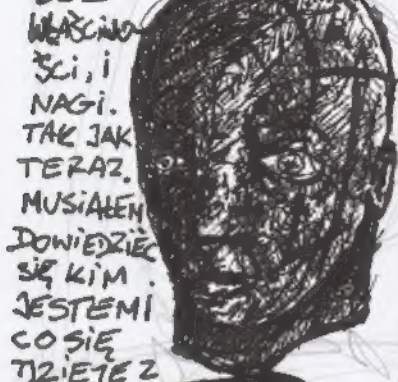 WŁAŚCIWO
ŚCI, I
NAGI.
TAK JAK
TERAZ.
MUSIAŁEM
DOWIEDZIEĆ
SIĘ KIM
JESTEM I
CO SIĘ
DZIEJE Z